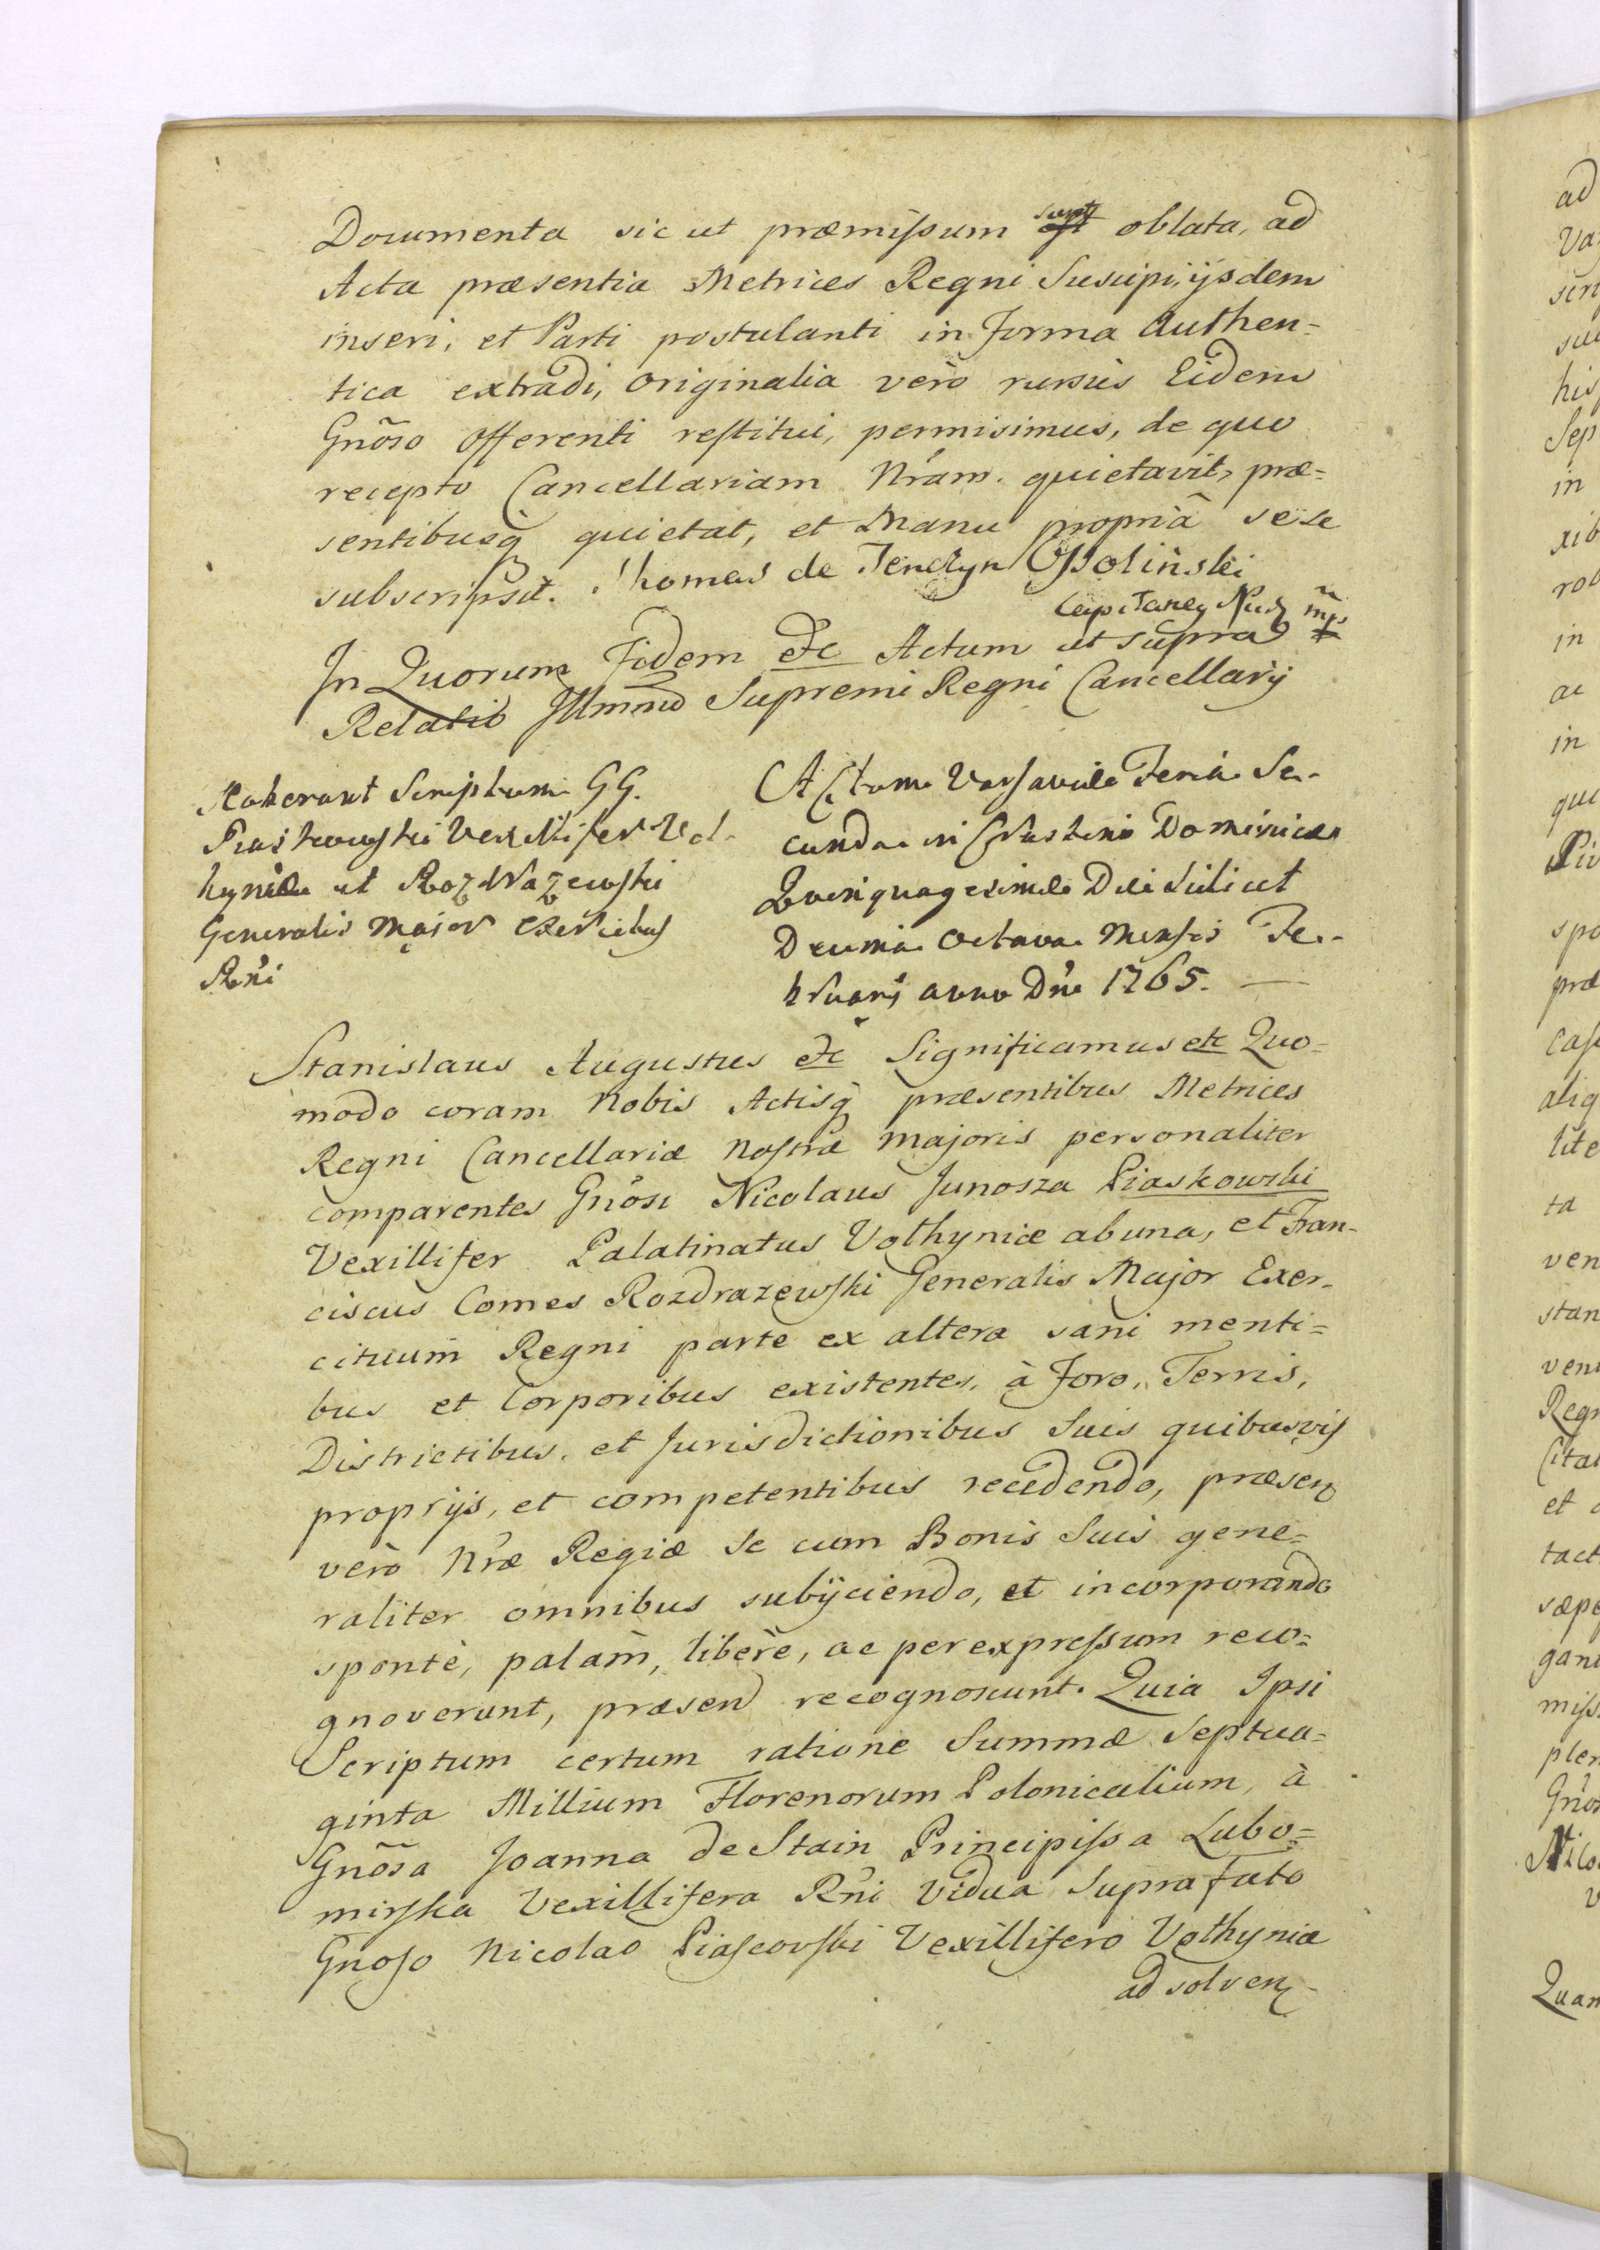 Documenta sic ut præmissum sunt oblata, ad
Acta præsentia Metrices Regni Suscipi, ijsdem
inseri, et Parti postulanti in Forma Authen=
tica extradi, Originalia verò rursus Eidem
Gnõso Offerenti restitui, permisimus, de quo
recepto Cancellariam Nram. quietavit, præ=
sentibusq̀ quietat, et Manu proprià sese
subscripsit. Thomas de Tenczyn Ossoliński
Capitaney Nur mp
In Quorum Fidem etc Actum ut supra
Relatio Illmmd Supremi Regni Cancellarij
Roborant Scriptum GG.
Piaskowski Vexillifer Vol-
hyniæ et Rozdrazewski
Generalis Major Exercitus
Rni
Actum Varsaviæ Feria Se-
cunda in Crastino Dominicæ
Quinquagesimæ Die Scilicet
Decima Octava Mensis Fe-
bruarij anno Dni 1765.
Stanislaus Augustus etc Significamus etc Quo=
modo coram Nobis Actisq̀ præsentibus Metrices
Regni Cancellariæ Nostræ majoris personaliter
comparentes Gnosi Nicolaus Junosza Piaskowski
Vexillifer Palatinatus Volhyniæ ab una, et Fran-
ciscus Comes Rozdrazewski Generalis Major Exer-
cituum Regni parte ex altera sani menti=
bus et Corporibus existentes, à Foro, Terris,
Districtibus, et Jurisdictionibus Suis quibusvis
proprijs, et competentibus recedendo, præsen
verò Nræ Regiæ se cum Bonis Suis gene=
raliter omnibus subijciendo, et incorporando
spontè, palàm, liberè, ac per expressum reco=
gnoverunt, præsen recognoscunt. Quia Ipsi
Scriptum certum ratione Summæ Septua=
ginta Millium Florenorum Polonicalium, à
Gnõsa Joanna de Stain Principissa Lubo=
mirska Vexillifera Rni Vidua Suprafato
Gnoso Nicolao Piascovski Vexillifero Volhyniæ
ad solven